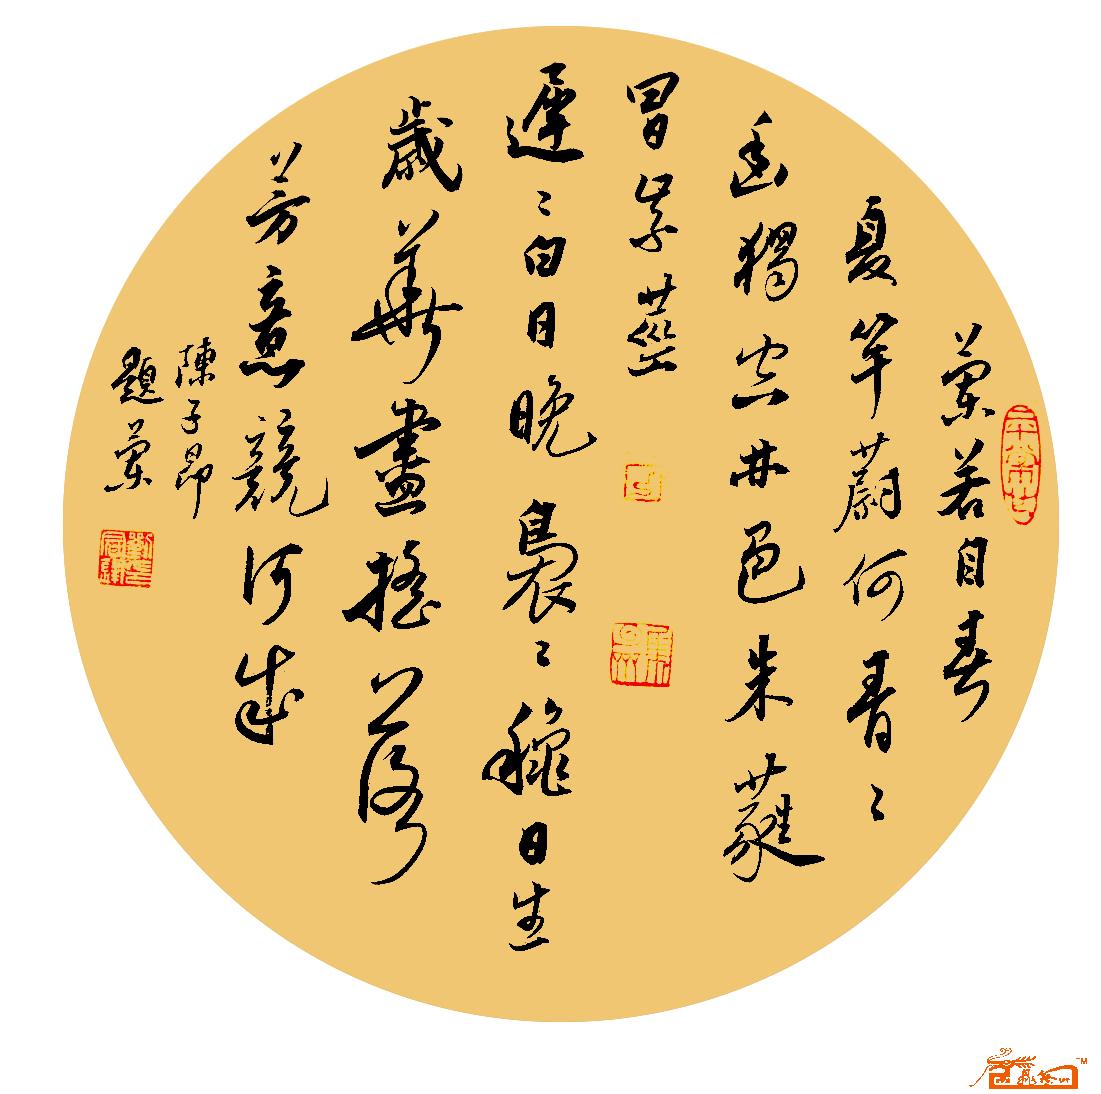 蘭若自春
夏芊蔚何青々
幽獨空林色朱蕤
冒紫莖
遲々白日晚裊々穐日生
歲華盡搖落
芳意競何成
陳子昂
題蘭